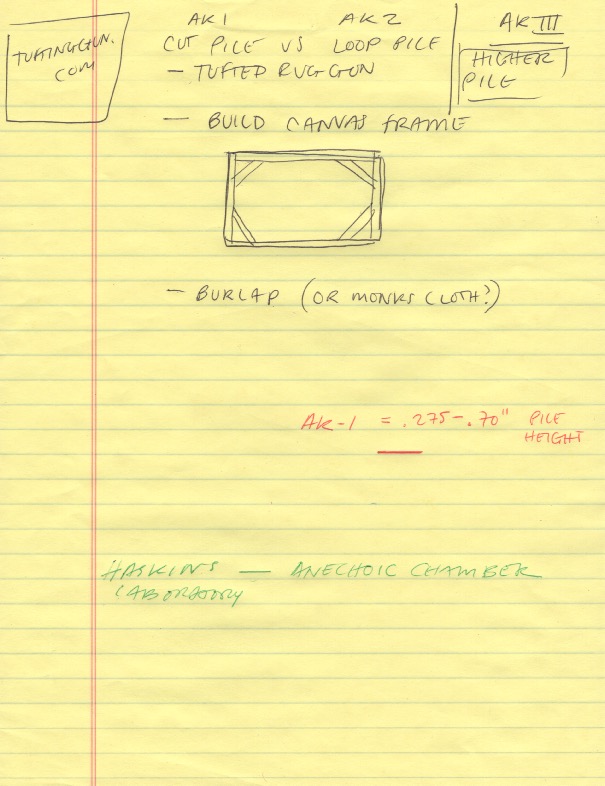 TUFTINGGUN.
COM
AK1 AK2
CUT PILE VS LOOP PILE
- TUFTED RUG GUN
AK III
HIGHER
PILE
- BUILD CANVAS FRAME
- BURLAP (OR MONKS CLOTH?)
AK-1 = .275-.70" PILE
HEIGHT
HASKINS — ANECHOIC CHAMBER
LABORATORY